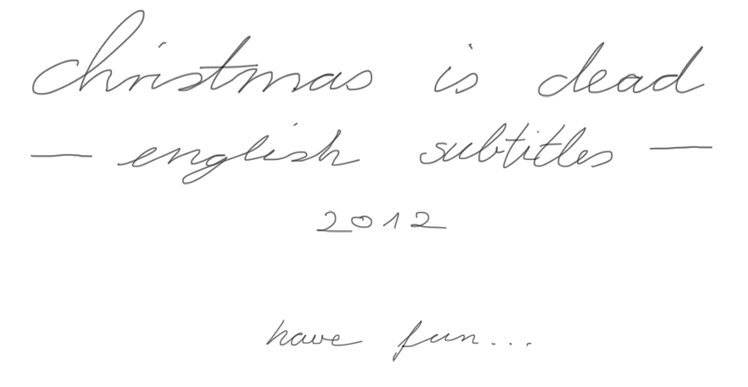 christmas is dead
— english subtitles —
2012
have fun...